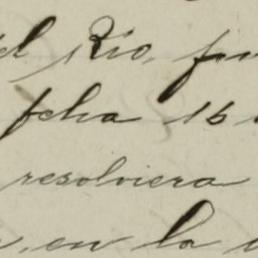 el Rio, 
fcha 16
resolviera
, en la